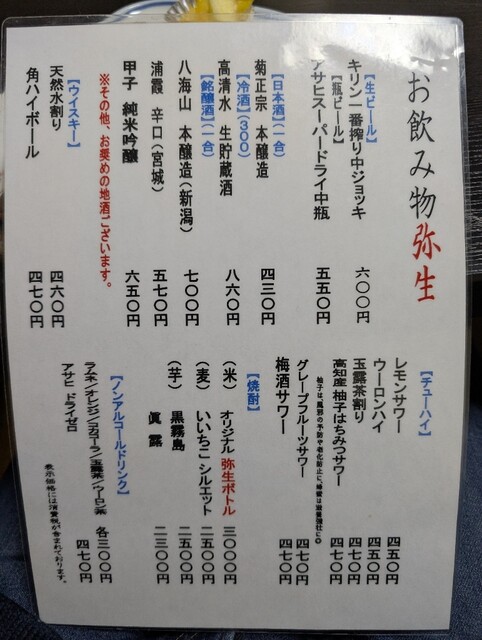 お飲み物 弥生
【生ビール】
キリン一番搾り中ジョッキ 六〇〇円
【瓶ビール】
アサヒスーパードライ中瓶 五五〇円
【日本酒】(一合)
菊正宗 本醸造 四三〇円
【冷酒】(300)
高清水 生貯蔵酒 八六〇円
【銘醸酒】(一合)
八海山 本醸造(新潟) 七〇〇円
浦霞 辛口(宮城) 五七〇円
甲子 純米吟醸 六五〇円
※その他、お奨めの地酒ございます。
【ウイスキー】
天然水割り 四六〇円
角ハイボール 四七〇円
【チューハイ】
レモンサワー 四五〇円
ウーロンハイ 四五〇円
玉露茶割り 四七〇円
高知産 柚子はちみつサワー 四七〇円
柚子は、風邪の予防や老化防止に、蜂蜜は滋養強壮に◎
グレープフルーツサワー 四七〇円
梅酒サワー 四七〇円
【焼酎】
(米) オリジナル 弥生ボトル 三〇〇〇円
(麦) いいちこ シルエット 二五〇〇円
(芋) 黒霧島 二五〇〇円
眞露 二三〇〇円
【ノンアルコールドリンク】
ラムネ/オレンジ/コカコーラ/玉露茶/ウーロン茶 各三〇〇円
アサヒ ドライゼロ 四七〇円
表示価格には消費税が含まれております。